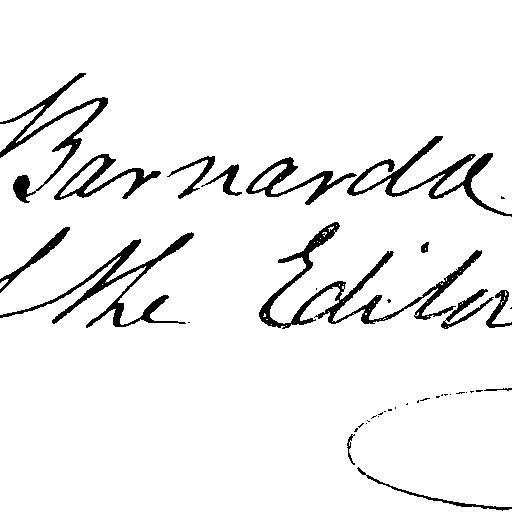 Barnarda
the Editor